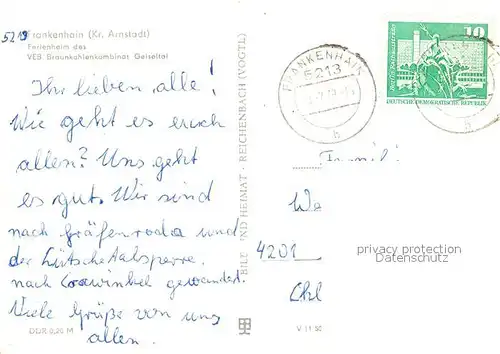 5213
Frankenhain (Kr. Arnstadt)
Ferienheim des
VEB Braunkohlenkombinat Geiseltal
Ihr lieben alle!
Wie geht es euch
allen? Uns geht
es gut. Wir sind
nach Gräfenroda und
der Lütschetalsperre,
nach Crawinkel gewandert.
Viele Grüße von uns
allen.
DDR 0,20 M
BILD UND HEIMAT · REICHENBACH (VOGTL)
V 11 50
FRANKENHAIN
5213
h
10
DEUTSCHE DEMOKRATISCHE REPUBLIK
Famili
Wa
4201
Chl
privacy protection
Datenschutz